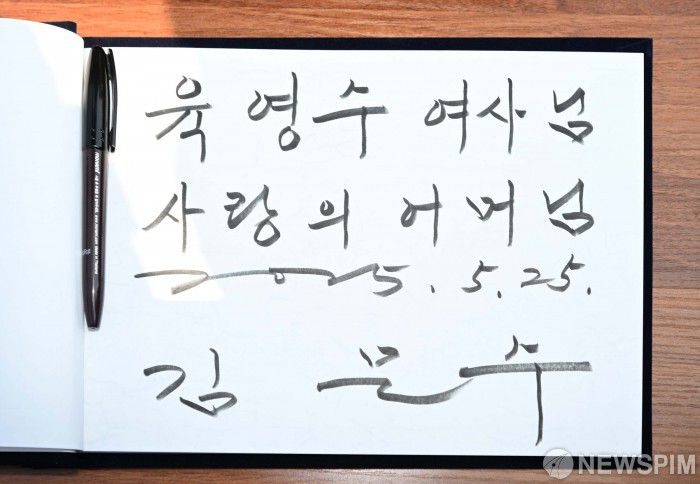 육영수 여사님
사랑의 어머님
2025. 5. 25.
김문수
NEWSPIM